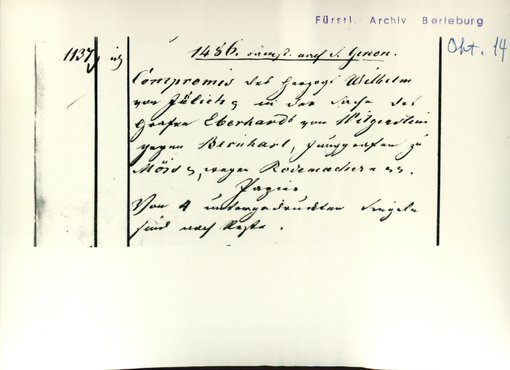 Fürstl. Archiv Berleburg
Okt. 14
1137
1486. dinst. nach S. Gereon.
Compromis des Herzogs Wilhelm
von Jülich, in der Sache des
Grafen Eberhards von Witgenstein
gegen Bernhart, Junggrafen zu
Mörs, wegen Rodemachern
Papier
Von 4 untergedruckten Siegeln
sind noch Reste.